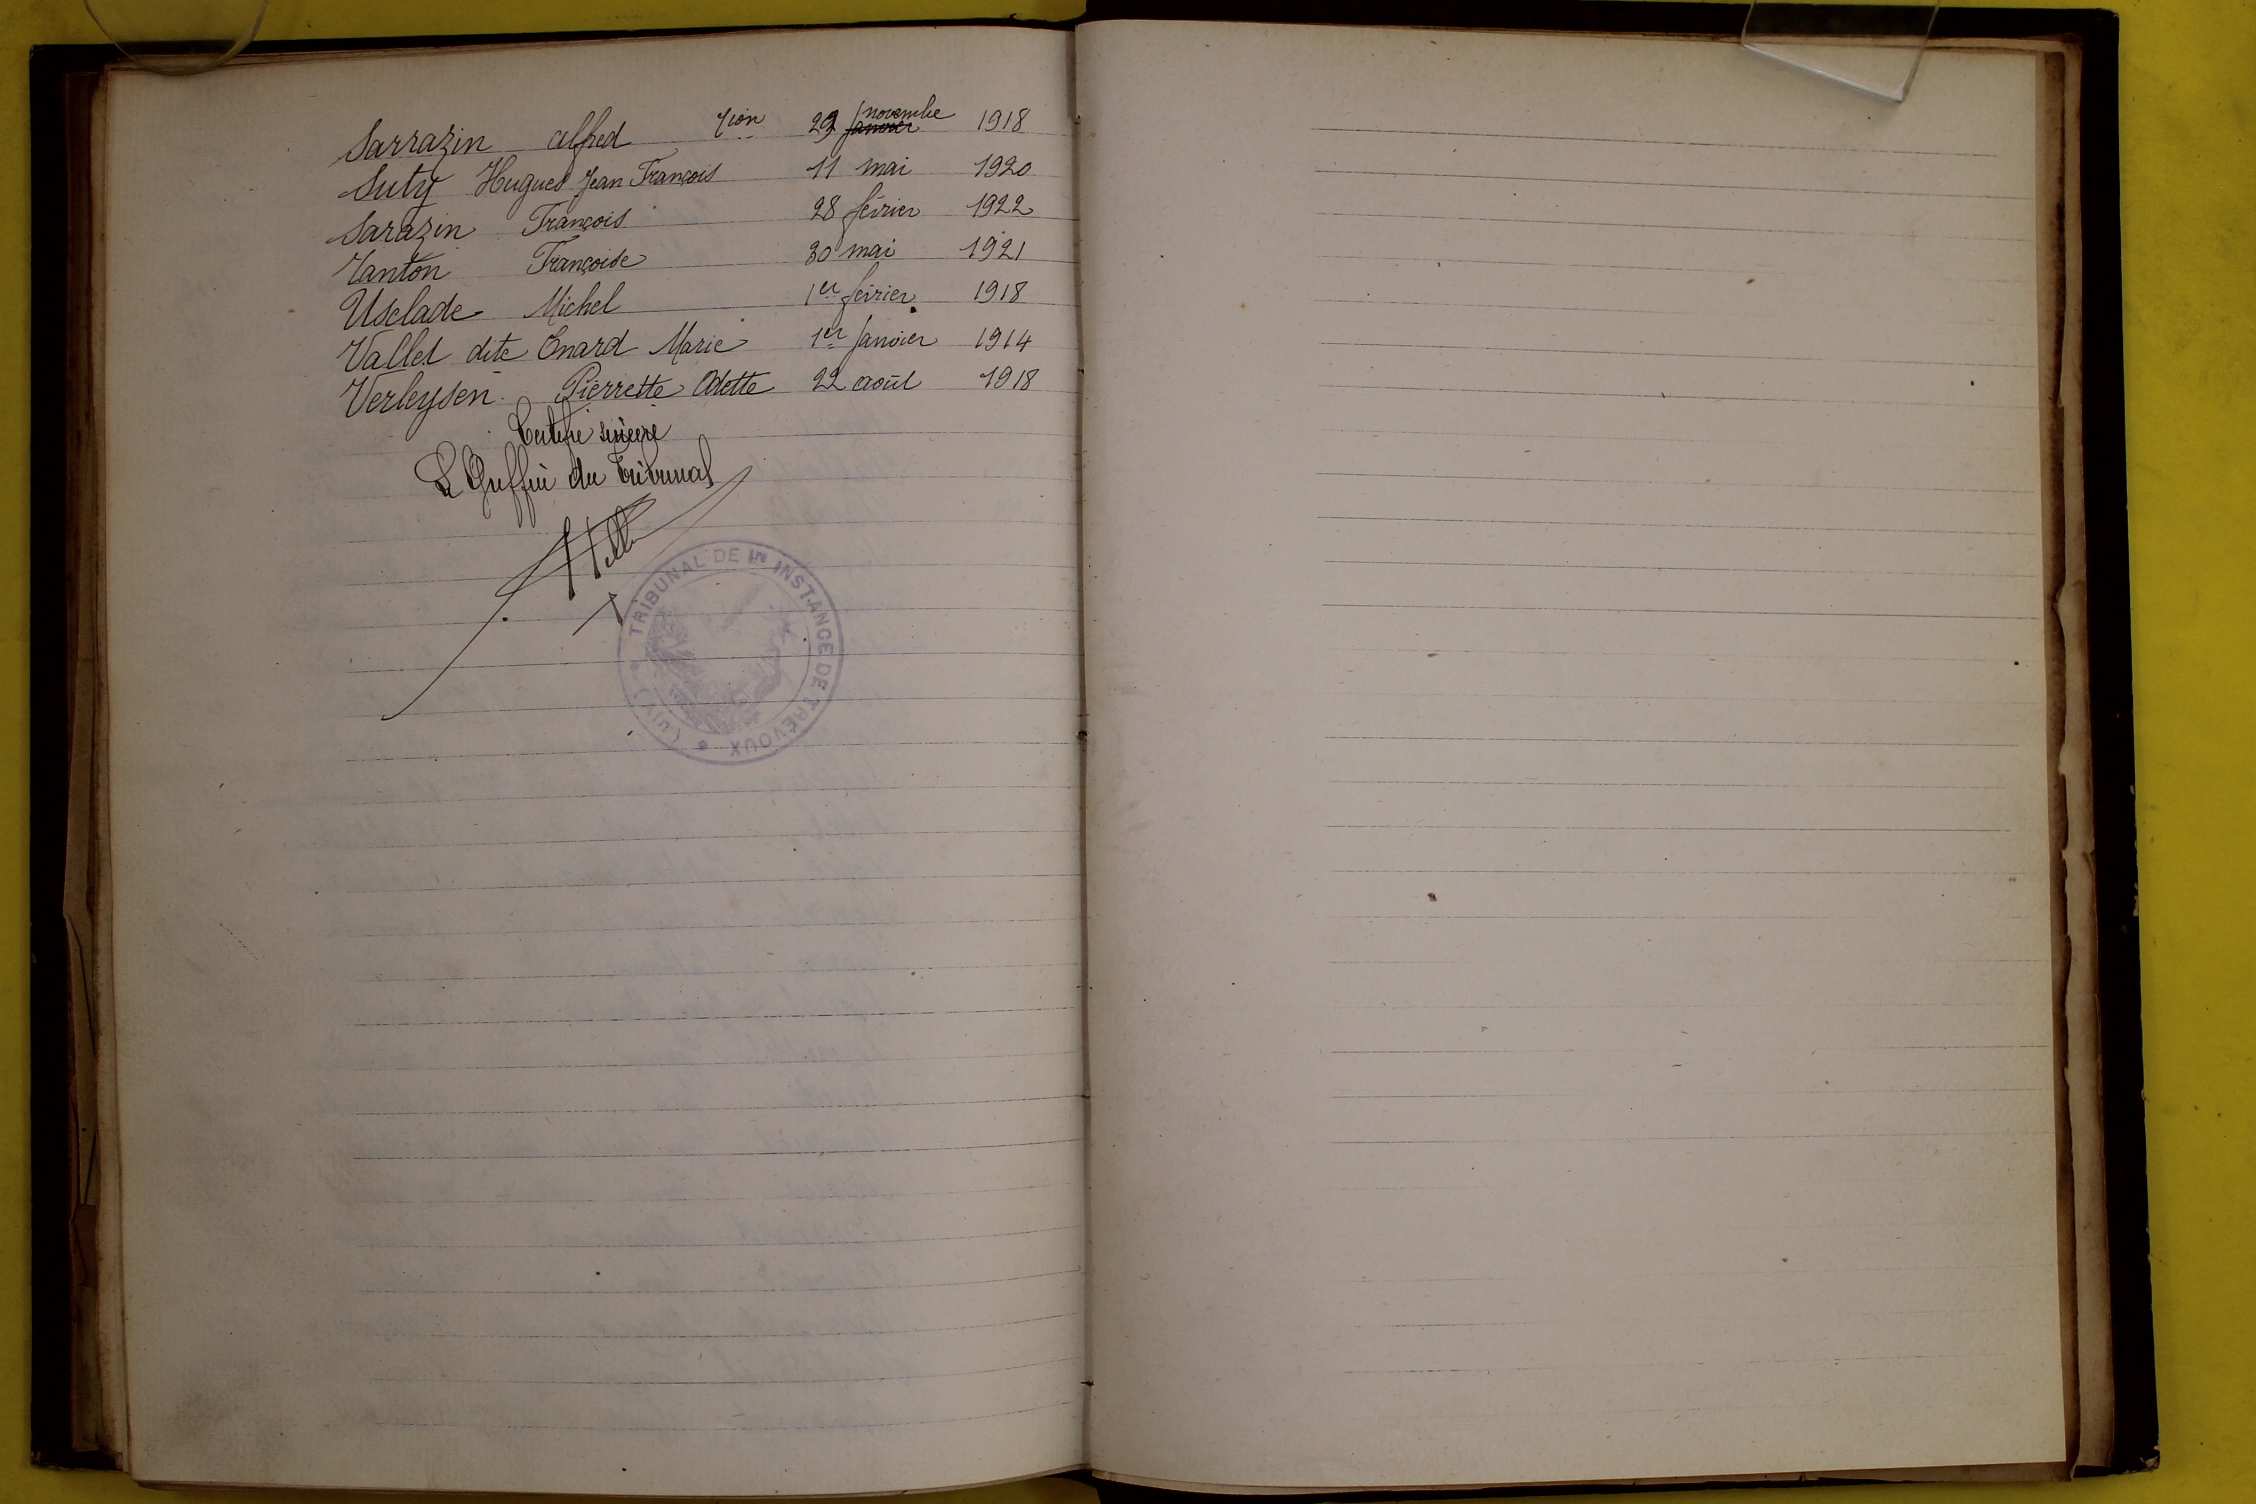 Sarrazin Alfred 29 janvier novembre 1918
Suty Hugues Jean François 11 mai 1920
Sarazin François 28 février 1922
Tanton Françoise 30 mai 1921
Usclade Michel 1er février 1918
Vallet dite Enard Marie 1er Janvier 1914
Verleysen Pierrette Odette 22 août 1918
Certifié sincère
Le Greffier du Tribunal
TRIBUNAL DE 1re INSTANCE DE TRÉVOUX (AIN)